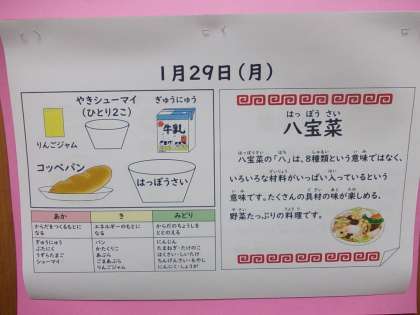 1月29日(月)
やきシューマイ
(ひとり2こ)
ぎゅうにゅう
牛乳
りんごジャム
コッペパン
はっぽうさい
あか
き
みどり
からだをつくるもとに
なる
エネルギーのもとに
なる
からだのちょうしを
ととのえる
ぎゅうにゅう
ぶたにく
うずらたまご
シューマイ
パン
かたくりこ
あぶら
ごまあぶら
りんごジャム
にんじん
たまねぎ・たけのこ
はくさい・しいたけ
ちんげんさい・もやし
にんにく・しょうが
はっ ぽう さい
八宝菜
はっぽうさい しゅるい いみ
八宝菜の「八」は、8種類という意味ではなく、
ざいりょう
いろいろな材料がいっぱい入っているという
いみ ぐざい あじ たの
意味です。たくさんの具材の味が楽しめる、
やさい りょうり
野菜たっぷりの料理です。